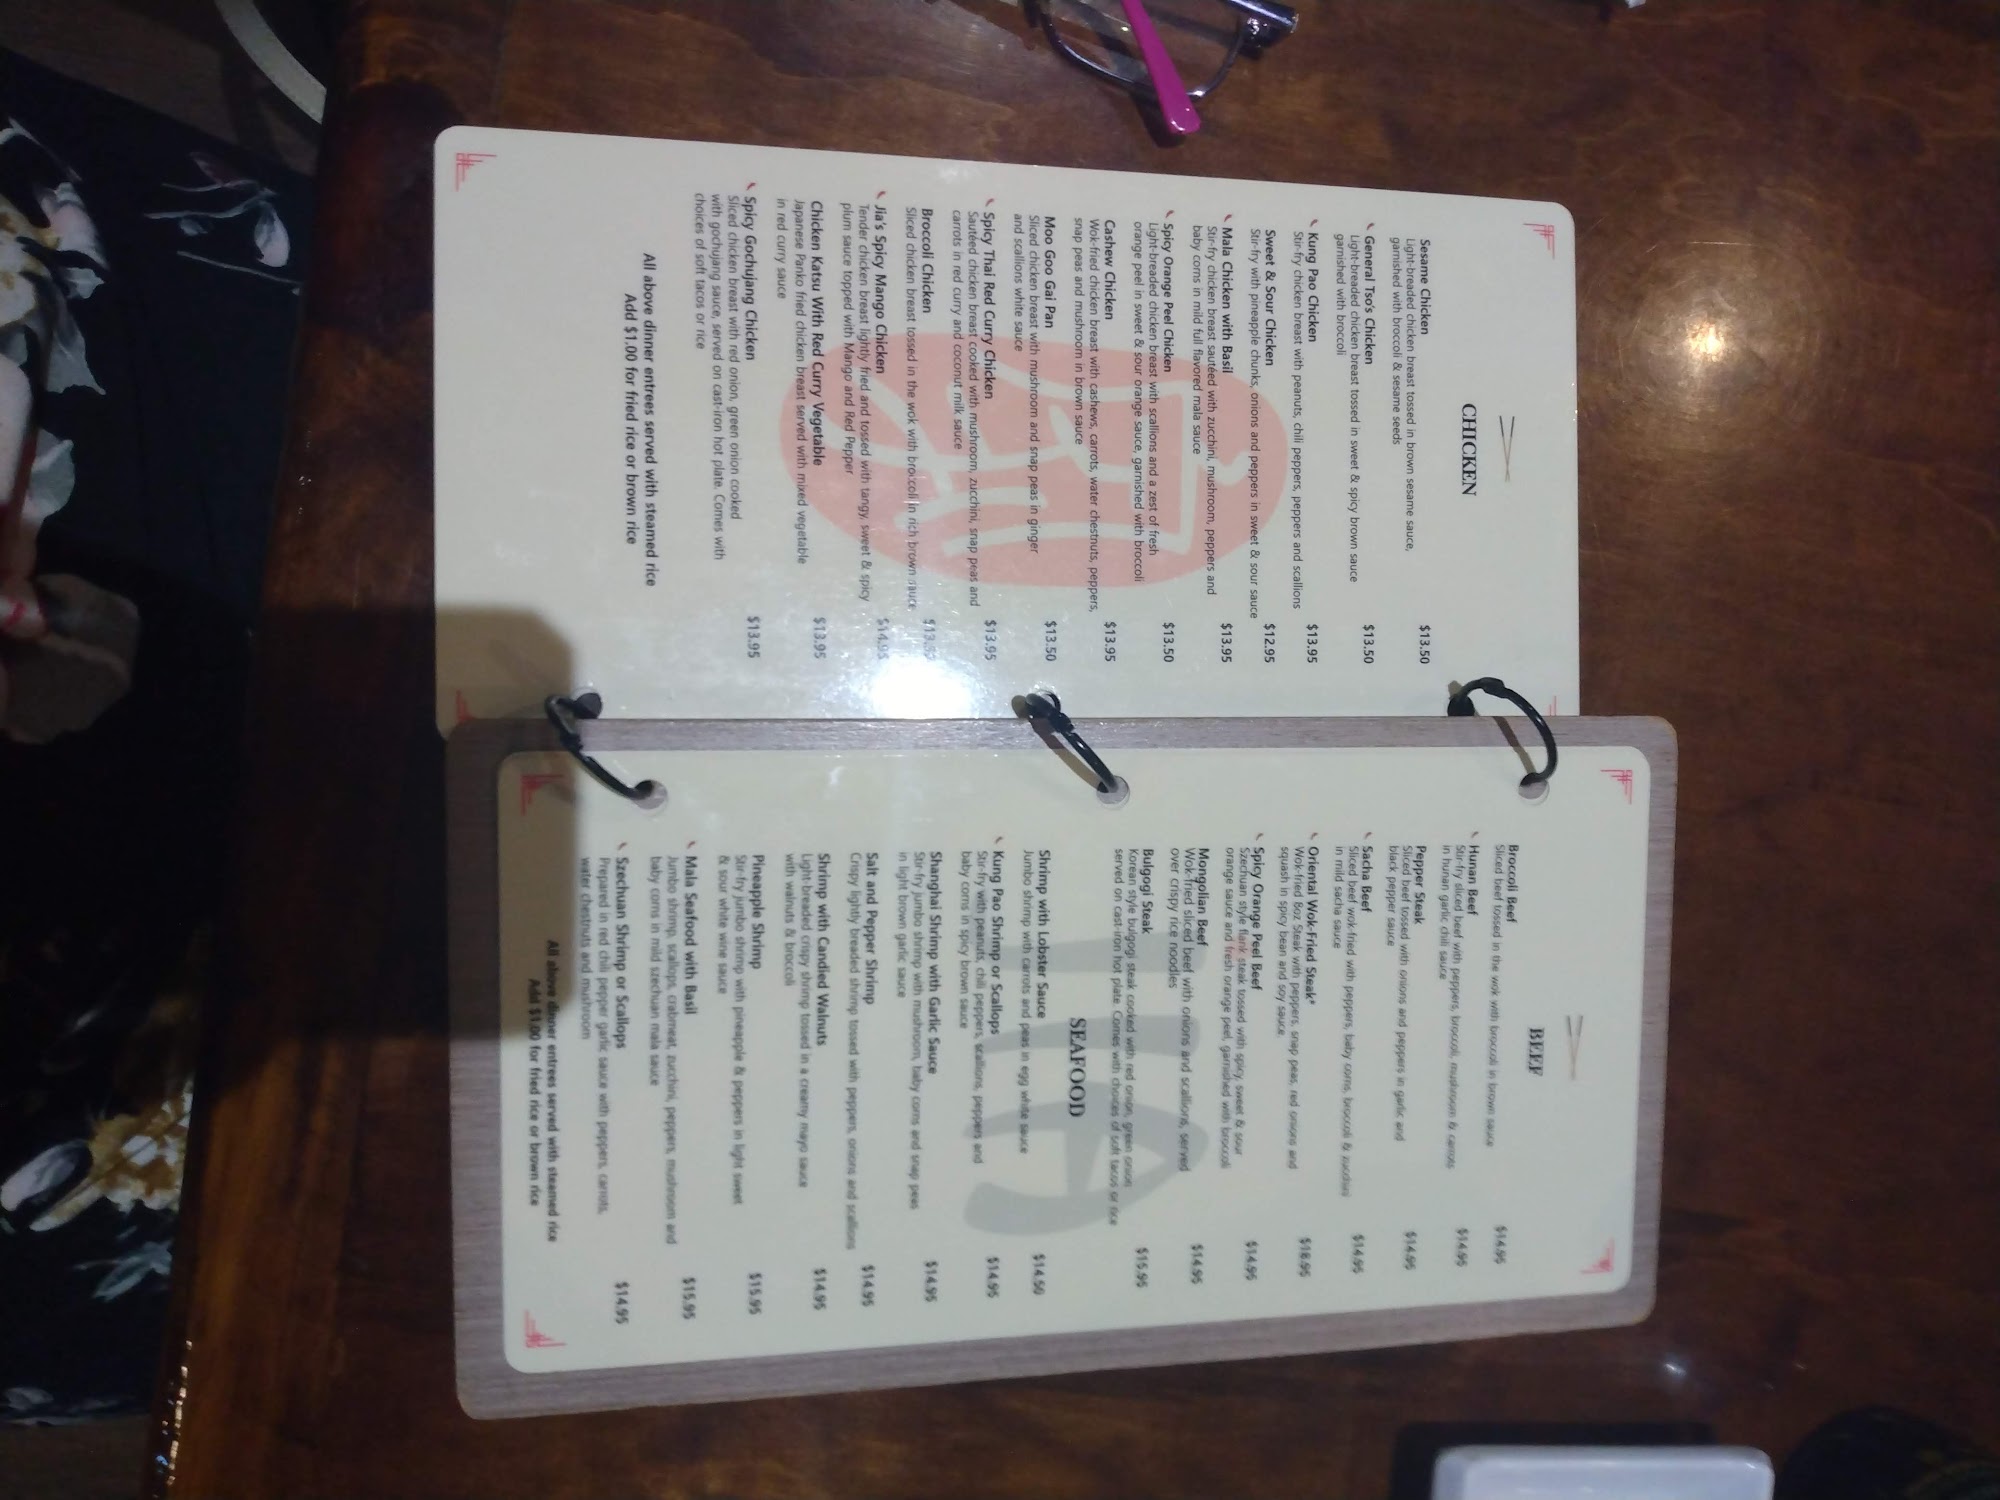 CHICKEN
Sesame Chicken $13.50
Light-breaded chicken breast tossed in brown sesame sauce,
garnished with broccoli & sesame seeds
General Tso's Chicken $13.50
Light-breaded chicken breast tossed in sweet & spicy brown sauce
garnished with broccoli
Kung Pao Chicken $13.95
Stir-fry chicken breast with peanuts, chili peppers, peppers and scallions
Sweet & Sour Chicken $12.95
Stir-fry with pineapple chunks, onions and peppers in sweet & sour sauce
Mala Chicken with Basil $13.95
Stir-fry chicken breast sautéed with zucchini, mushroom, peppers and
baby corns in mild full flavored mala sauce
Spicy Orange Peel Chicken $13.50
Light-breaded chicken breast with scallions and a zest of fresh
orange peel in sweet & sour orange sauce, garnished with broccoli
Cashew Chicken $13.95
Wok-fried chicken breast with cashews, carrots, water chestnuts, peppers,
snap peas and mushroom in brown sauce
Moo Goo Gai Pan $13.50
Sliced chicken breast with mushroom and snap peas in ginger
and scallions white sauce
Spicy Thai Red Curry Chicken $13.95
Sautéed chicken breast cooked with mushroom, zucchini, snap peas and
carrots in red curry and coconut milk sauce
Broccoli Chicken
Sliced chicken breast tossed in the wok with broccoli in rich brown sauce
Jia's Spicy Mango Chicken $14.95
Tender chicken breast lightly fried and tossed with tangy, sweet & spicy
plum sauce topped with Mango and Red Pepper
Chicken Katsu With Red Curry Vegetable $13.95
Japanese Panko fried chicken breast served with mixed vegetable
in red curry sauce
Spicy Gochujang Chicken $13.95
Sliced chicken breast with red onion, green onion cooked
with gochujang sauce, served on cast-iron hot plate. Comes with
choices of soft tacos or rice
All above dinner entrees served with steamed rice
Add $1.00 for fried rice or brown rice
BEEF
Broccoli Beef $14.95
Sliced beef tossed in the wok with broccoli in brown sauce
Hunan Beef $14.95
Stir-fry sliced beef with peppers, broccoli, mushroom & carrots
in hunan garlic chili sauce
Pepper Steak $14.95
Sliced beef tossed with onions and peppers in garlic and
black pepper sauce
Sacha Beef $14.95
Sliced beef wok-fried with peppers, baby corns, broccoli & zucchini
in mild sacha sauce
Oriental Wok-Fried Steak* $18.95
Wok-fried 8oz Steak with peppers, snap peas, red onions and
squash in spicy bean and soy sauce
Spicy Orange Peel Beef $14.95
Szechuan style flank steak tossed with spicy, sweet & sour
orange sauce and fresh orange peel, garnished with broccoli
Mongolian Beef $14.95
Wok-fried sliced beef with onions and scallions, served
over crispy rice noodles
Bulgogi Steak $15.95
Korean style bulgogi steak cooked with red onion, green onion
served on cast-iron hot plate. Comes with choices of soft tacos or rice
SEAFOOD
Shrimp with Lobster Sauce $14.50
Jumbo shrimp with carrots and peas in egg white sauce
Kung Pao Shrimp or Scallops $14.95
Stir-fry with peanuts, chili peppers, scallions, peppers and
baby corns in spicy brown sauce
Shanghai Shrimp with Garlic Sauce $14.95
Stir-fry jumbo shrimp with mushroom, baby corns and snap peas
in light brown garlic sauce
Salt and Pepper Shrimp $14.95
Crispy lightly breaded shrimp tossed with peppers, onions and scallions
Shrimp with Candied Walnuts $14.95
Light-breaded crispy shrimp tossed in a creamy mayo sauce
with walnuts & broccoli
Pineapple Shrimp $15.95
Stir-fry jumbo shrimp with pineapple & peppers in light sweet
& sour white wine sauce
Mala Seafood with Basil $15.95
Jumbo shrimp, scallops, crabmeat, zucchini, peppers, mushroom and
baby corns in mild szechuan mala sauce
Szechuan Shrimp or Scallops $14.95
Prepared in red chili pepper garlic sauce with peppers, carrots,
water chestnuts and mushroom
All above dinner entrees served with steamed rice
Add $1.00 for fried rice or brown rice